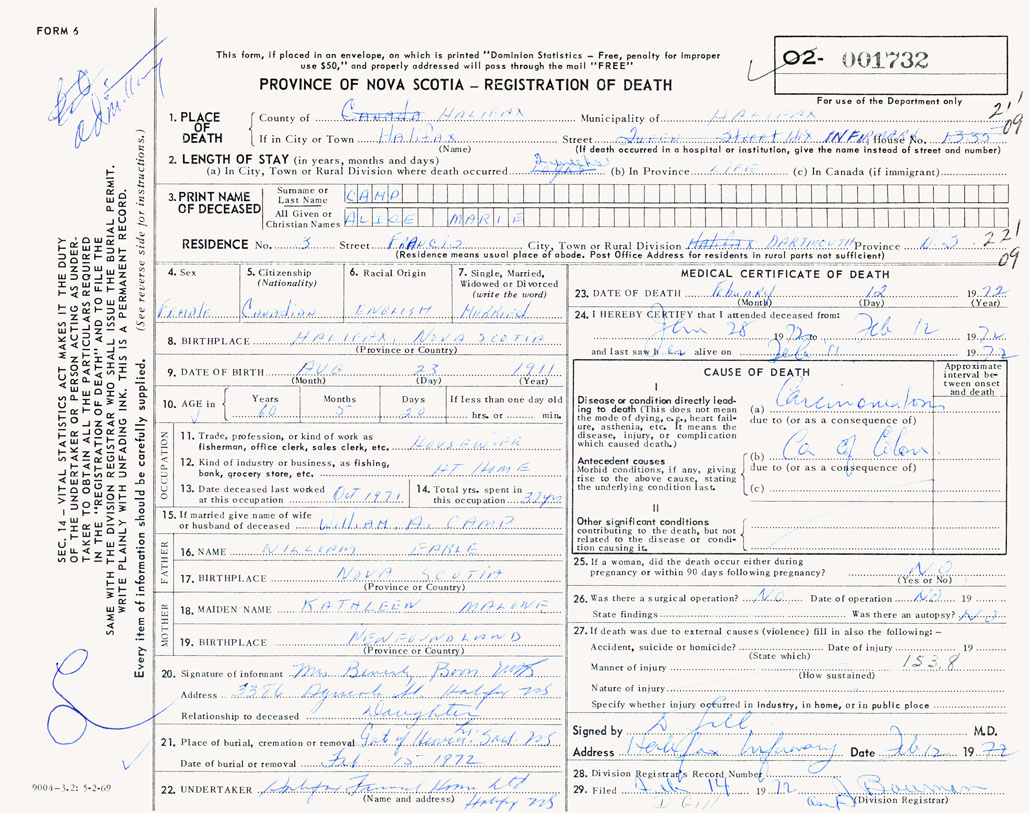 FORM 6
This form, if placed in an envelope, on which is printed "Dominion Statistics – Free, penalty for improper
use $50," and properly addressed will pass through the mail "FREE"
02- 001732
PROVINCE OF NOVA SCOTIA – REGISTRATION OF DEATH
For use of the Department only
1. PLACE OF DEATH
County of Canada HALIFAX Municipality of HALIFAX 21
If in City or Town HALIFAX Street INFIRMARY House No. 1335 09
(Name) (If death occurred in a hospital or institution, give the name instead of street and number)
2. LENGTH OF STAY (in years, months and days)
(a) In City, Town or Rural Division where death occurred (b) In Province LIFE (c) In Canada (if immigrant)
3. PRINT NAME OF DECEASED
Surname or Last Name CAMP
All Given or Christian Names ALICE MARIE
RESIDENCE No. 3 Street FRANCIS City, Town or Rural Division Halifax DARTMOUTH Province N.S. 221
(Residence means usual place of abode. Post Office Address for residents in rural parts not sufficient) 09
4. Sex Female
5. Citizenship (Nationality) Canadian
6. Racial Origin ENGLISH
7. Single, Married, Widowed or Divorced (write the word) MARRIED
8. BIRTHPLACE HALIFAX, NOVA SCOTIA
(Province or Country)
9. DATE OF BIRTH AUG 23 1911
(Month) (Day) (Year)
10. AGE in Years 60 Months 5 Days 20 If less than one day old hrs. or min.
OCCUPATION
11. Trade, profession, or kind of work as fisherman, office clerk, sales clerk, etc. HOUSEWIFE
12. Kind of industry or business, as fishing, bank, grocery store, etc. AT HOME
13. Date deceased last worked at this occupation Oct 1971
14. Total yrs. spent in this occupation 37 yrs
15. If married give name of wife or husband of deceased William A. CAMP
FATHER
16. NAME WILLIAM EARLE
17. BIRTHPLACE NOVA SCOTIA
(Province or Country)
MOTHER
18. MAIDEN NAME KATHLEEN MALONE
19. BIRTHPLACE NEWFOUNDLAND
(Province or Country)
20. Signature of informant Mrs
Address Halifax NS
Relationship to deceased Daughter
21. Place of burial, cremation or removal Gate of Heaven Sack NS
Date of burial or removal Feb 15 1972
22. UNDERTAKER Halifax Funeral Home Ltd
(Name and address) Halifax NS
MEDICAL CERTIFICATE OF DEATH
23. DATE OF DEATH Febuary 12 1972
(Month) (Day) (Year)
24. I HEREBY CERTIFY that I attended deceased from:
Jan 28 1972 to Feb 12 1972
and last saw her alive on Feb 11 1972
CAUSE OF DEATH
Approximate interval between onset and death
I
Disease or condition directly leading to death (This does not mean the mode of dying, e.g., heart failure, asthenia, etc. It means the disease, injury, or complication which caused death.)
(a) Carcinomatosis
due to (or as a consequence of)
Antecedent causes
Morbid conditions, if any, giving rise to the above cause, stating the underlying condition last.
(b) Ca of Colon
due to (or as a consequence of)
(c)
II
Other significant conditions contributing to the death, but not related to the disease or condition causing it.
25. If a woman, did the death occur either during pregnancy or within 90 days following pregnancy? NO
(Yes or No)
26. Was there a surgical operation? NO Date of operation NO 19
State findings Was there an autopsy? NO
27. If death was due to external causes (violence) fill in also the following: –
Accident, suicide or homicide? Date of injury 19
(State which) 153.8
Manner of injury
(How sustained)
Nature of injury
Specify whether injury occurred in industry, in home, or in public place
Signed by D Gill M.D.
Address Halifax Infirmary Date Feb 12 1972
28. Division Registrar's Record Number
29. Filed Feb 14 1972 Bauman
D. Gill (Division Registrar)
SEC. 14 – VITAL STATISTICS ACT MAKES IT THE DUTY
OF THE UNDERTAKER OR PERSON ACTING AS UNDER-
TAKER TO OBTAIN ALL THE PARTICULARS REQUIRED
IN THE "REGISTRATION OF DEATH" AND TO FILE THE
SAME WITH THE DIVISION REGISTRAR WHO SHALL ISSUE THE BURIAL PERMIT.
WRITE PLAINLY WITH UNFADING INK. THIS IS A PERMANENT RECORD.
Every item of information should be carefully supplied. (See reverse side for instructions.)
9004-3.2: 5-2-69